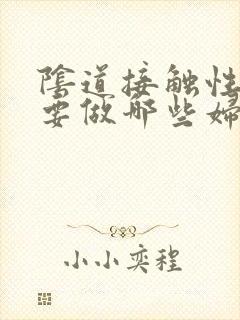 陰道接触性
要做哪些婦
小小奕程